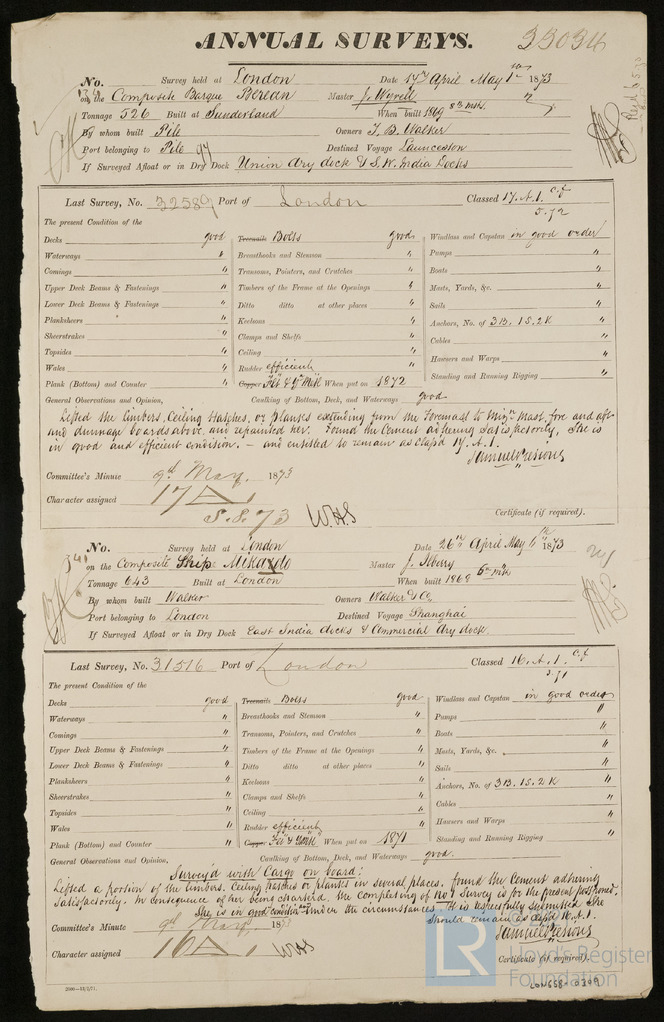 ANNUAL SURVEYS. 33034
No. Survey held at London Date 17th April May 1st 1873
on the Composite Barque Berean Master J. Wyrell
Tonnage 526 Built at Sunderland When built 1869 8th mth.
By whom built Pile Owners T. B. Walker
Port belonging to Pile Destined Voyage Launceston
If Surveyed Afloat or in Dry Dock Union dry dock & S.W. India Docks
Last Survey, No. 32589 Port of London Classed 17. A. 1. c.f
5.72
The present Condition of the
Decks good Treenails Bolts good Windlass and Capstan in good order
Waterways " Breasthooks and Stemson " Pumps "
Comings " Transoms, Pointers, and Crutches " Boats "
Upper Deck Beams & Fastenings " Timbers of the Frame at the Openings " Masts, Yards, &c. "
Lower Deck Beams & Fastenings " Ditto ditto at other places " Sails "
Planksheers " Keelsons " Anchors, No. of 3B. 1S. 2K "
Sheerstrakes " Clamps and Shelfs " Cables "
Topsides " Ceiling " Hawsers and Warps "
Wales " Rudder efficient Standing and Running Rigging "
Plank (Bottom) and Counter " Copper When put on 1872
General Observations and Opinion, Caulking of Bottom, Deck, and Waterways good
Lifted the limbers, Ceiling Hatches, or planks extending from the Foremast to Miz'n Mast, fore and aft
and dunnage boards above, and repainted her. Found the Cement adhering Satisfactorily, She is
in good and efficient condition. — and entitled to remain as Class'd 17. A. 1.
Committee's Minute 9th May. 1873
Character assigned 17 A 1
5.8.73 WHS
Certificate (if required).
No. Survey held at London Date 26th April May 1873
on the Composite Ship Mikado Master
Tonnage 643 Built at London When built 1869 6th mth
By whom built Walker Owners Walker & Co.
Port belonging to London Destined Voyage Shanghai
If Surveyed Afloat or in Dry Dock East India docks & Commercial dry dock
Last Survey, No. 31516 Port of London Classed 16. A. 1. c.f
The present Condition of the
Decks good Treenails Bolts good Windlass and Capstan in good order
Waterways " Breasthooks and Stemson " Pumps "
Comings " Transoms, Pointers, and Crutches " Boats "
Upper Deck Beams & Fastenings " Timbers of the Frame at the Openings " Masts, Yards, &c. "
Lower Deck Beams & Fastenings " Ditto ditto at other places " Sails "
Planksheers " Keelsons " Anchors, No. of 3B. 1S. 2K "
Sheerstrakes " Clamps and Shelfs " Cables "
Topsides " Ceiling " Hawsers and Warps "
Wales " Rudder efficient Standing and Running Rigging "
Plank (Bottom) and Counter " Copper When put on 1871
General Observations and Opinion, Caulking of Bottom, Deck, and Waterways good.
Survey'd with Cargo on board:
Lifted a portion of the limbers, Ceiling hatches or planks in several places, found the Cement adhering
Satisfactorily. In consequence of her being charter'd, the completing of No 1 Survey is for the present postponed.
She is in good condition under the circumstances. It is respectfully submitted She
should remain as Class'd 16. A. 1.
Committee's Minute 9th May 187
Character assigned 16 A 1 WHS
Certificate (if required).
LR Lloyd's Register
Foundation
LON658-0309